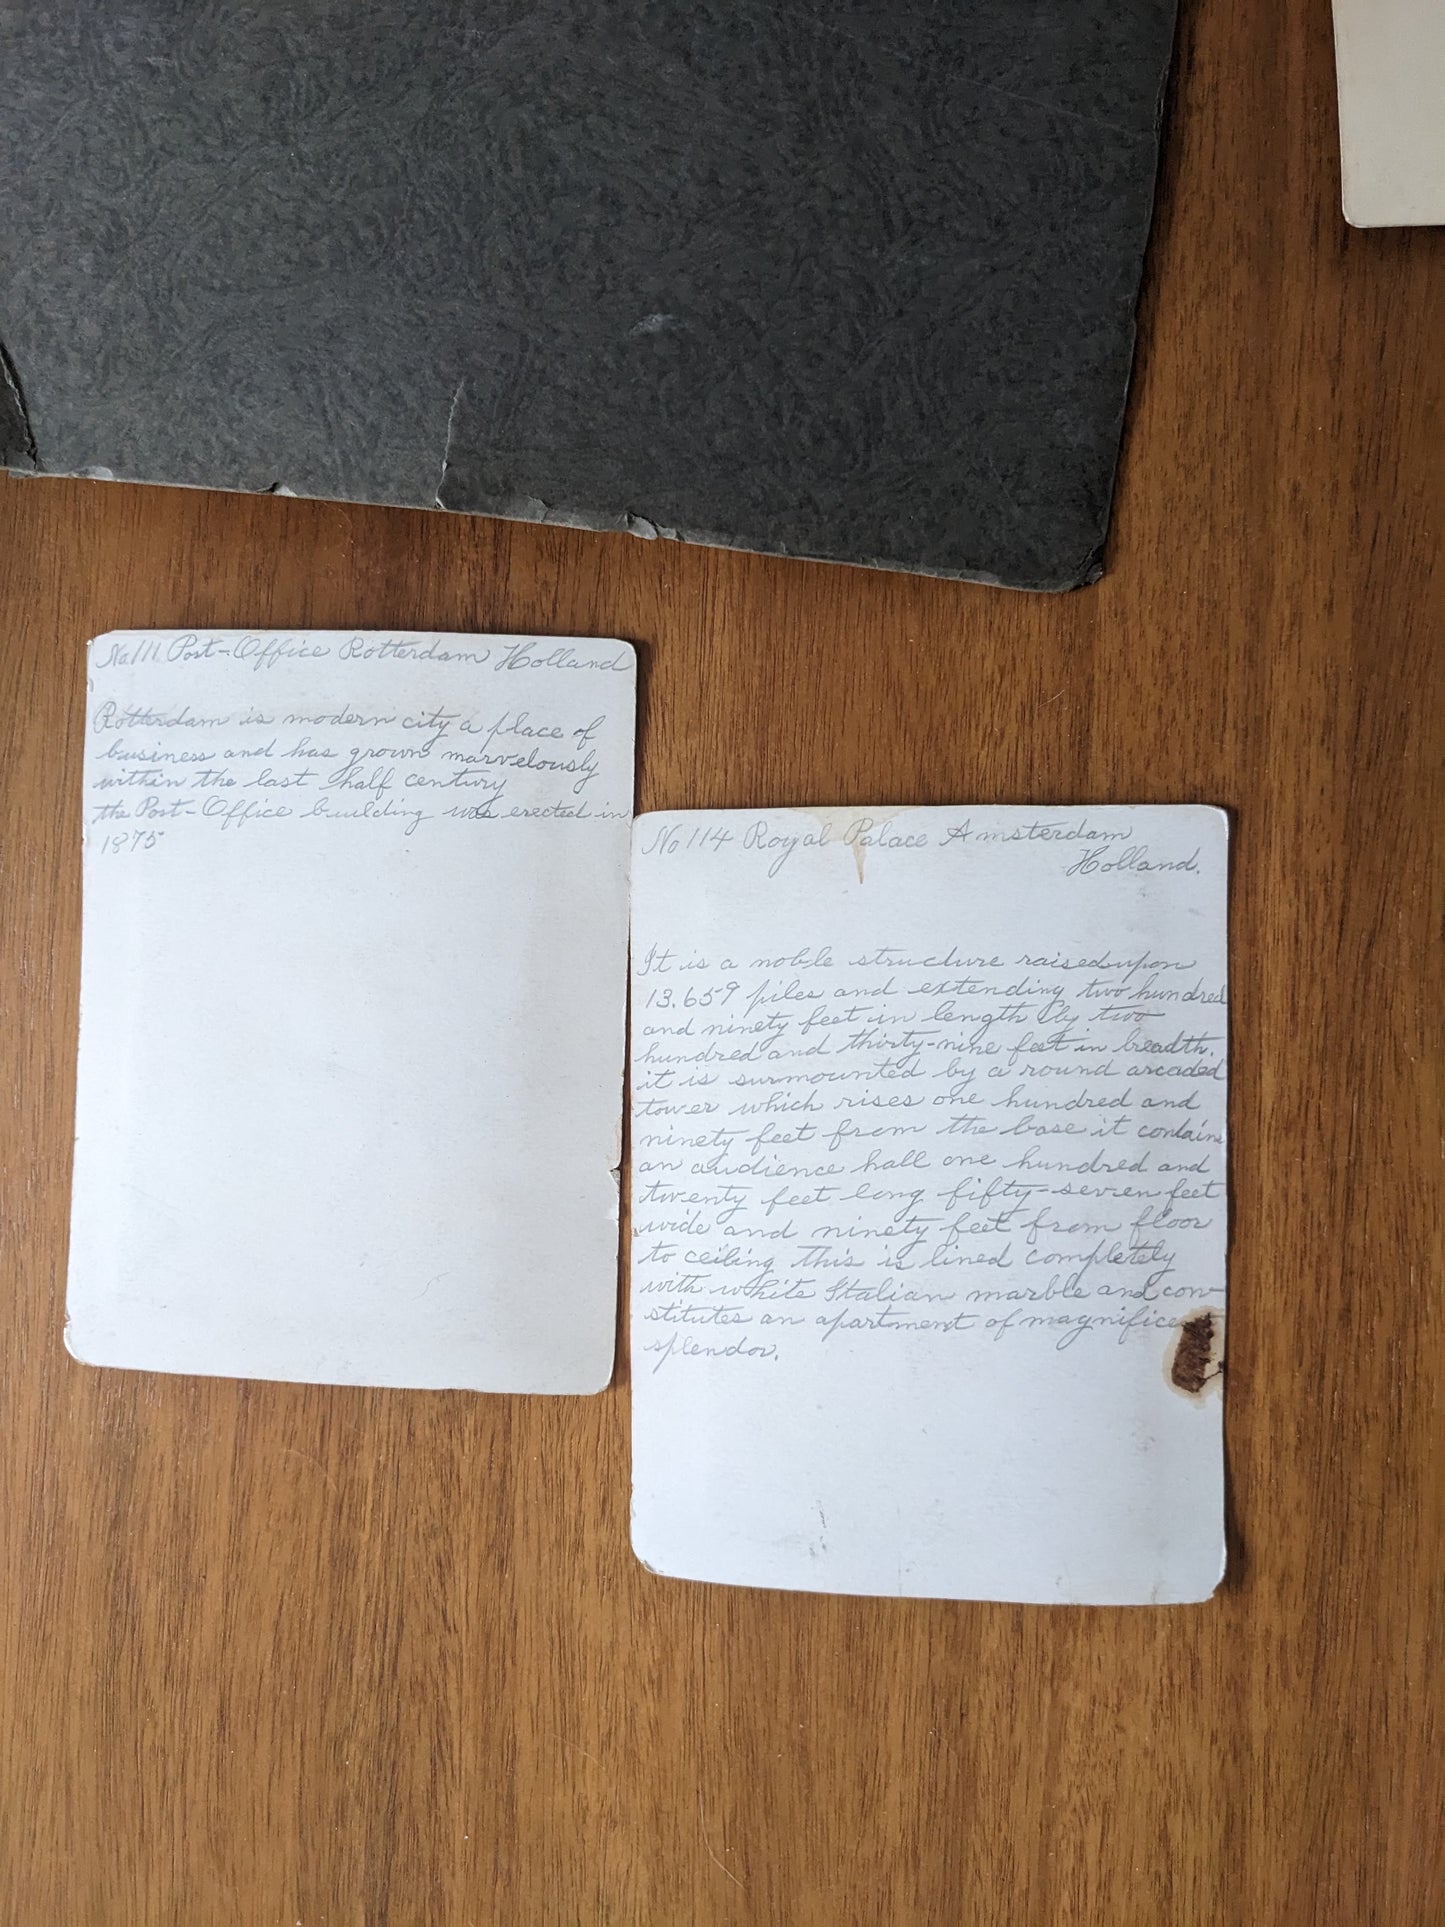 No 111 Post-Office Rotterdam Holland
Rotterdam is modern city a place of
business and has grown marvelously
within the last half century
the Post-Office building was erected in
1875
No 114 Royal Palace Amsterdam
Holland.
It is a noble structure raised upon
13.659 piles and extending two hundred
and ninety feet in length by two
hundred and thirty-nine feet in breadth.
it is surmounted by a round arcaded
tower which rises one hundred and
ninety feet from the base it contains
an audience hall one hundred and
twenty feet long fifty-seven feet
wide and ninety feet from floor
to ceiling this is lined completely
with white Italian marble and con-
stitutes an apartment of
splendor.